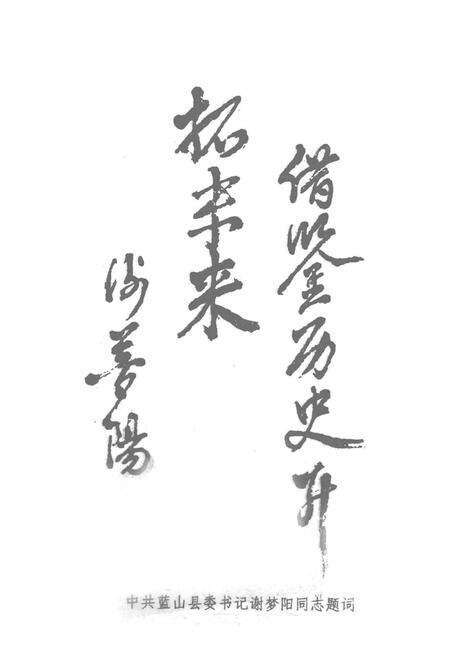 借鉴历史开
拓未来
谢夢陽
中共蓝山县委书记谢梦阳同志题词